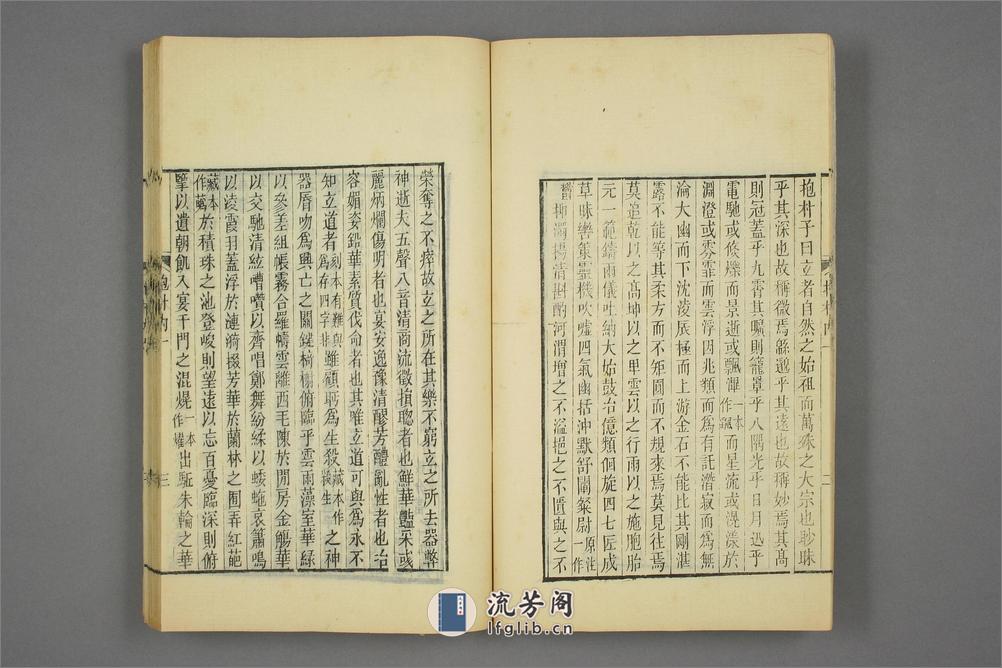 抱朴子曰玄者自然之始祖而萬殊之大宗也眇眛
乎其深也故稱微焉緜邈乎其遠也故稱妙焉其高
則冠蓋乎九霄其曠則籠罩乎八隅光乎日月迅乎
電馳或倏爍而景逝或飄滭一本作㲼而星流或滉漾於
淵澄或雰霏而雲浮因兆類而爲有託潛寂而爲無
淪大幽而下沈淩辰極而上游金石不能比其剛湛
露不能等其柔方而不矩圓而不規來焉莫見往焉
莫追乾以之高坤以之卑雲以之行雨以之施胞胎
元一範鑄兩儀吐納大始鼓冶億類佪旋四七匠成
草昧轡策靈機吹噓四氣幽括沖默舒闡粲尉原注一作
鬱抑濁揚清斟酌河渭增之不溢挹之不匱與之不
抱朴內一
二
榮奪之不瘁故立之所在其樂不窮立之所去器弊
神逝夫五聲八音清商流徵損聰者也鮮華豔采彧
麗炳爛傷明者也宴安逸豫清醪芳醴亂性者者也冶
容媚姿鉛華素質伐命者也其唯立道可與爲永不
知立道者刻本有難與爲存四字非雖顧眄爲生殺藏本作殺生之神
器脣吻爲興亡之關鍵綺榭俯臨乎雲雨藻室華綠
以參差組帳霧合羅幬雲離西毛陳於閒房金觴華
以交馳清絃嘈囋以齊唱鄭舞紛緌以蜲蛇哀簫鳴
以凌霞羽蓋浮於漣漪掇芳華於蘭林之囿弄紅葩
藏本作蘤於積珠之池登峻則望遠以忘百憂臨深則俯
擥以遺朝飢入宴千門之混熀一本作燿出驅朱輪之華
抱朴內一
三
流芳阁
lfglib.cn